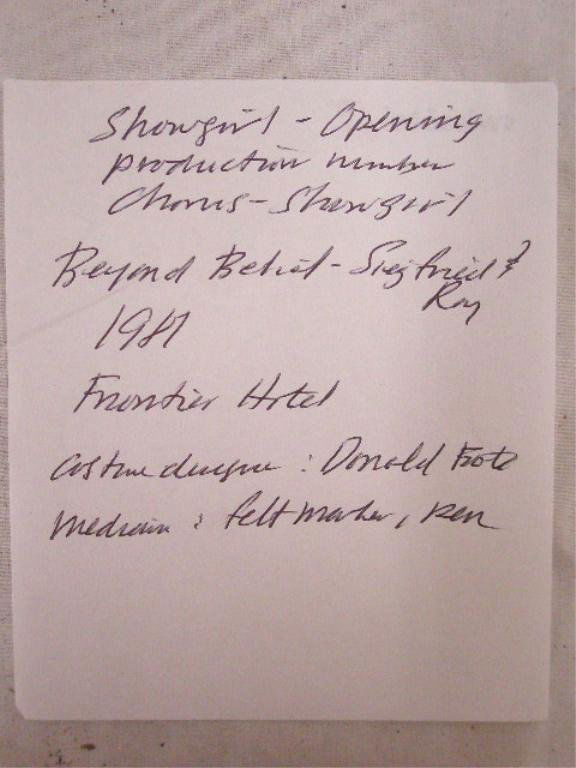 Showgirl - Opening
production number
Chorus - Showgirl
Beyond Belief - Siegfried &
Roy
1981
Frontier Hotel
Costume designer : Donald Foote
Medium : felt marker, pen